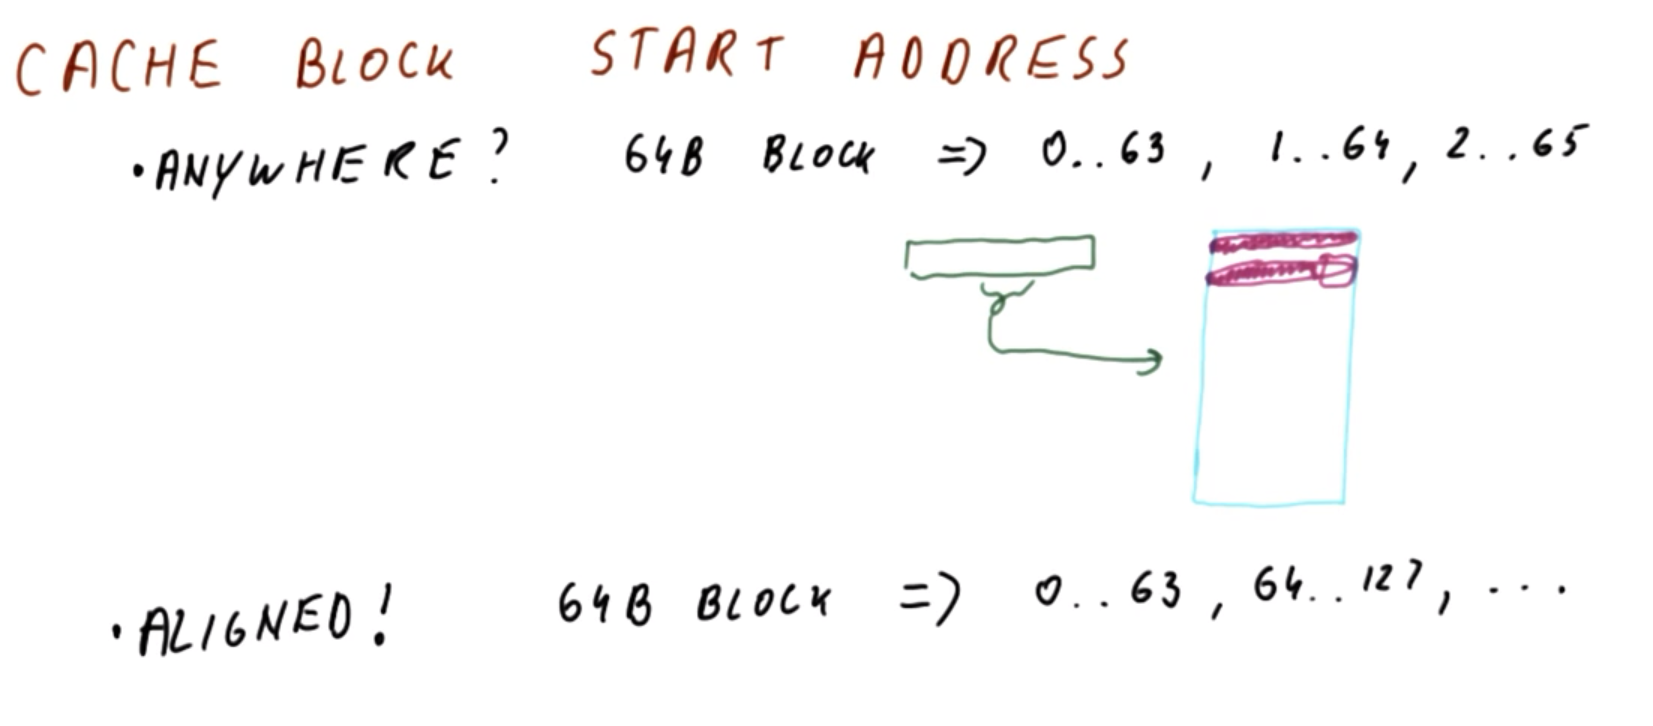 CACHE BLOCK START ADDRESS
• ANYWHERE? 64B BLOCK => 0..63, 1..64, 2..65
• ALIGNED! 64B BLOCK => 0..63, 64..127, ...